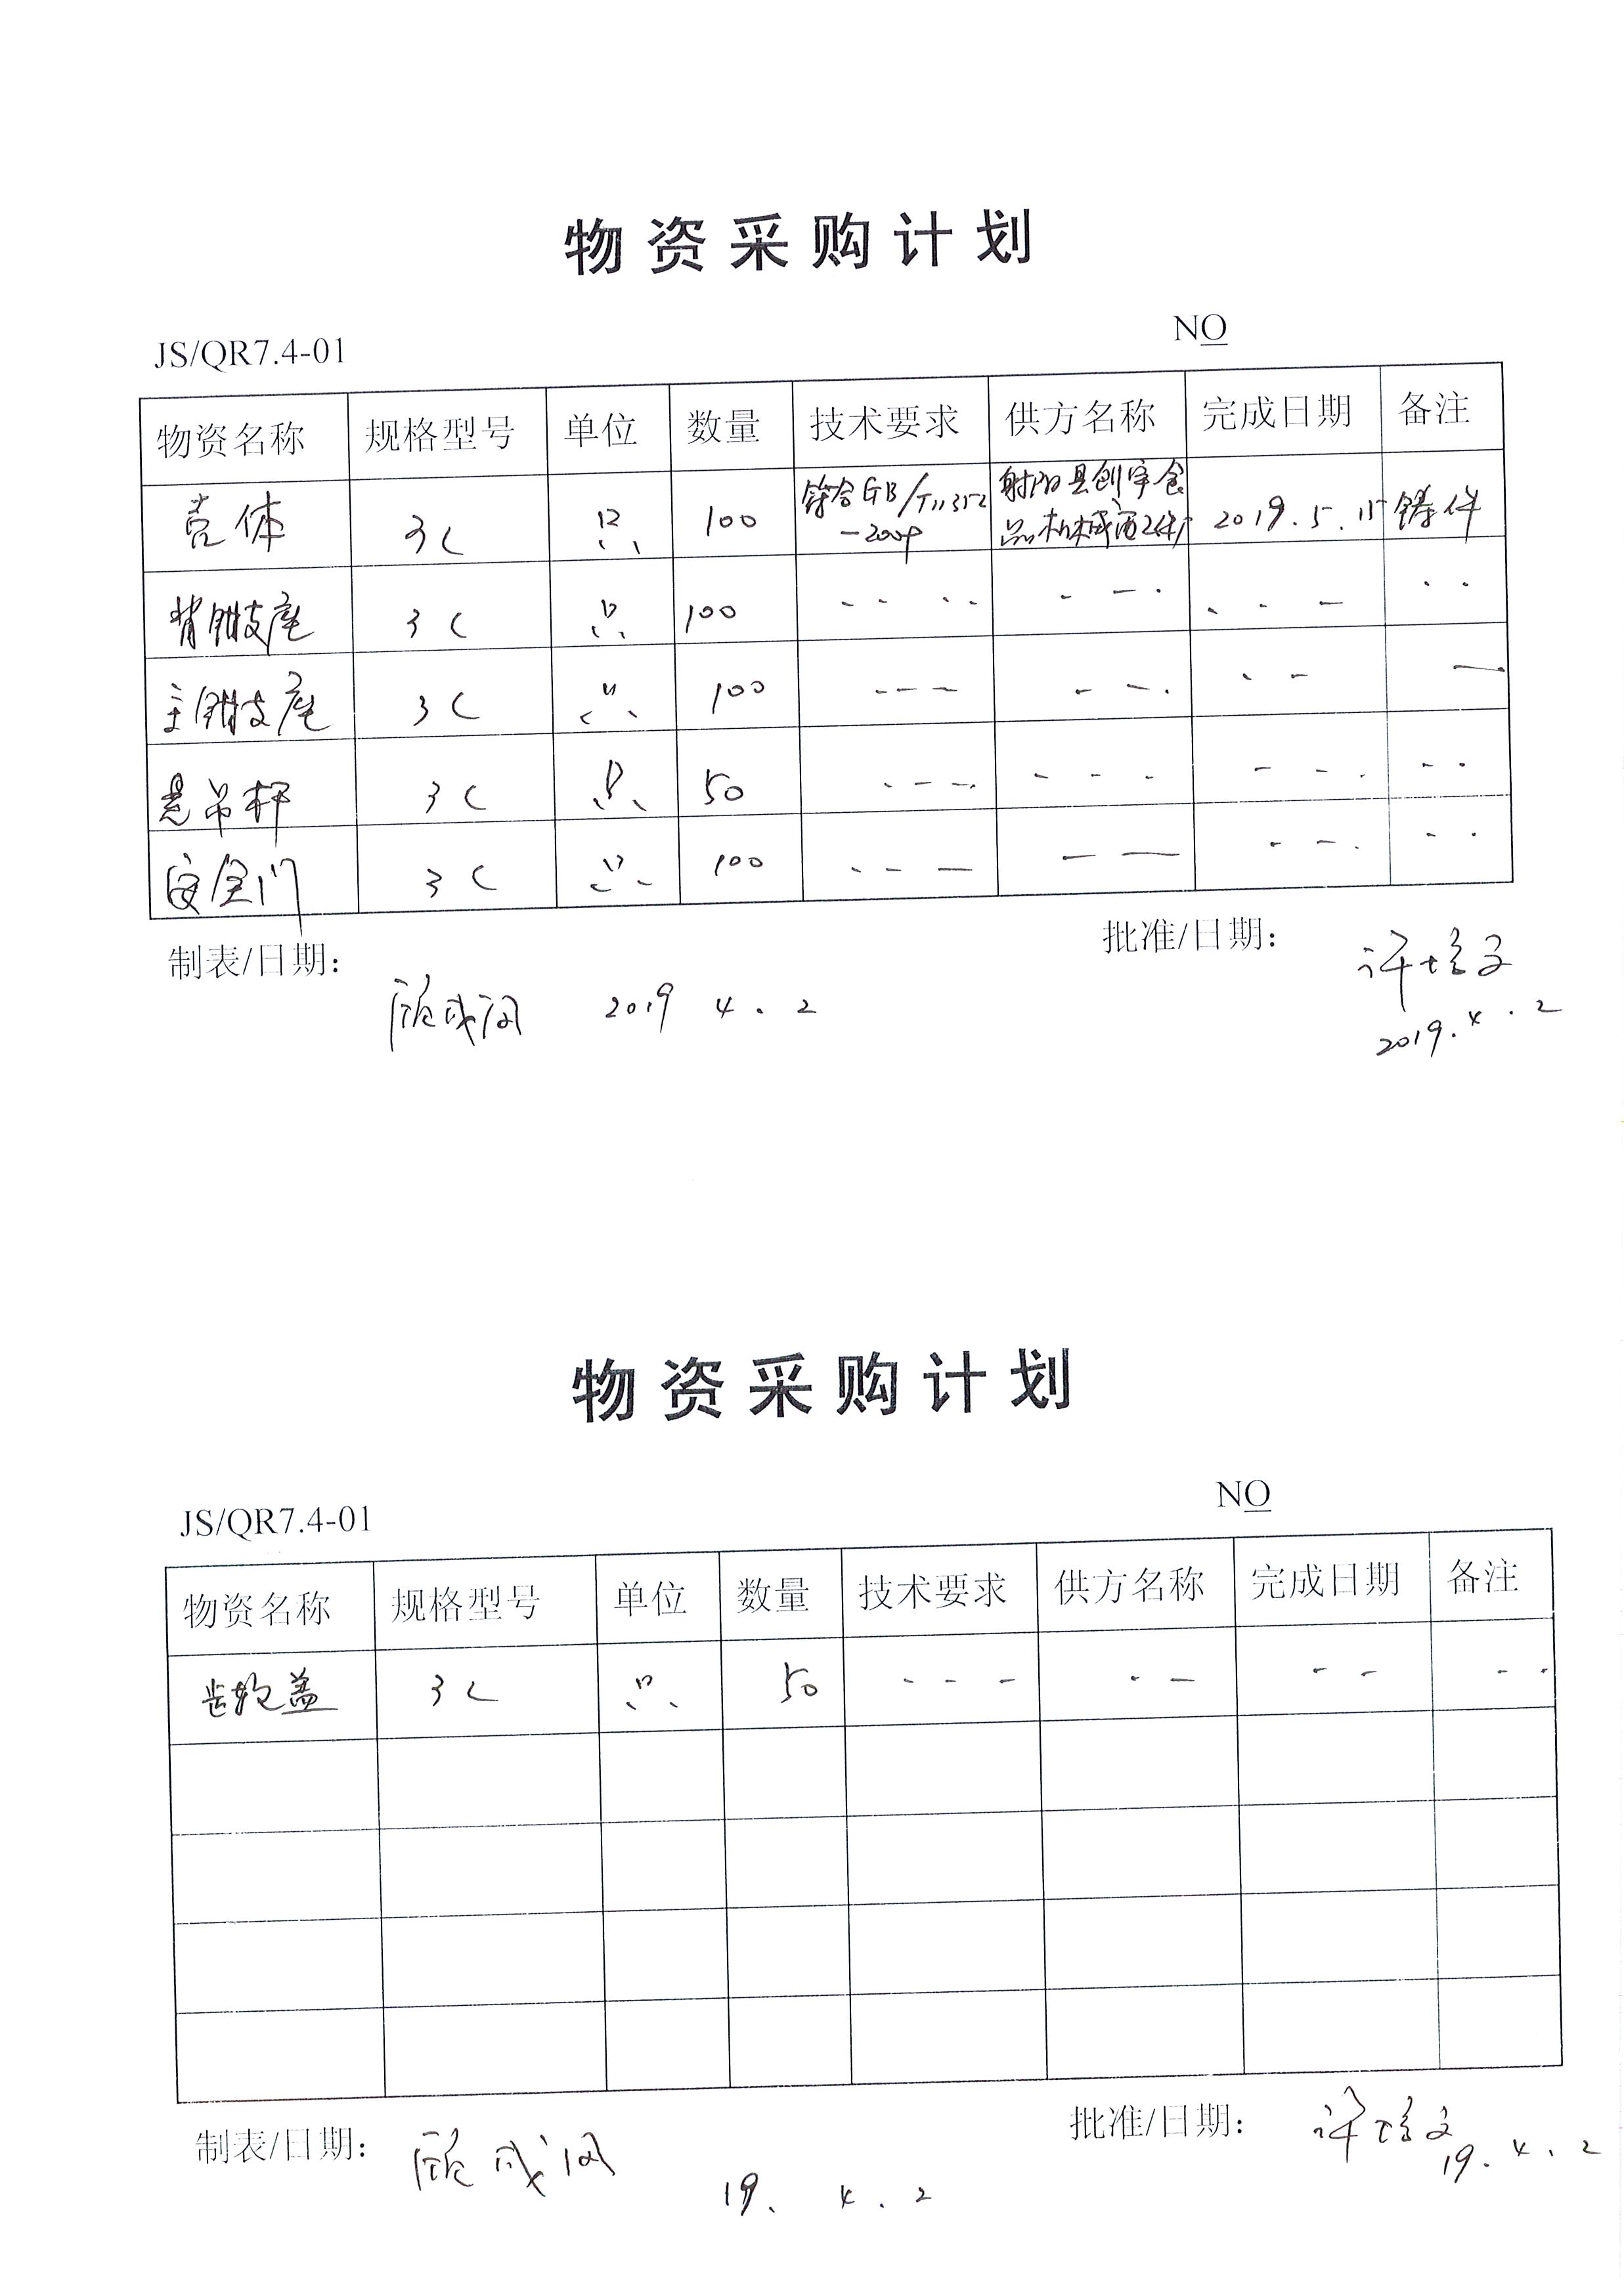 物资采购计划
JS/QR7.4-01 NO
物资名称 规格型号 单位 数量 技术要求 供方名称 完成日期 备注
壳体 3C 只 100 符合GB/T11352-2009 射阳县创宇食品机械 2019.5.15 铸件
背钳支座 3C 只 100
主钳支座 3C 只 100
悬吊杆 3C 只 50
安全门 3C 只 100
制表/日期： 2019 4.2 批准/日期： 许培文
2019.4.2
物资采购计划
JS/QR7.4-01 NO
物资名称 规格型号 单位 数量 技术要求 供方名称 完成日期 备注
齿轮盖 3C 只 50
制表/日期： 批准/日期： 许培文
19.4.2
19.4.2